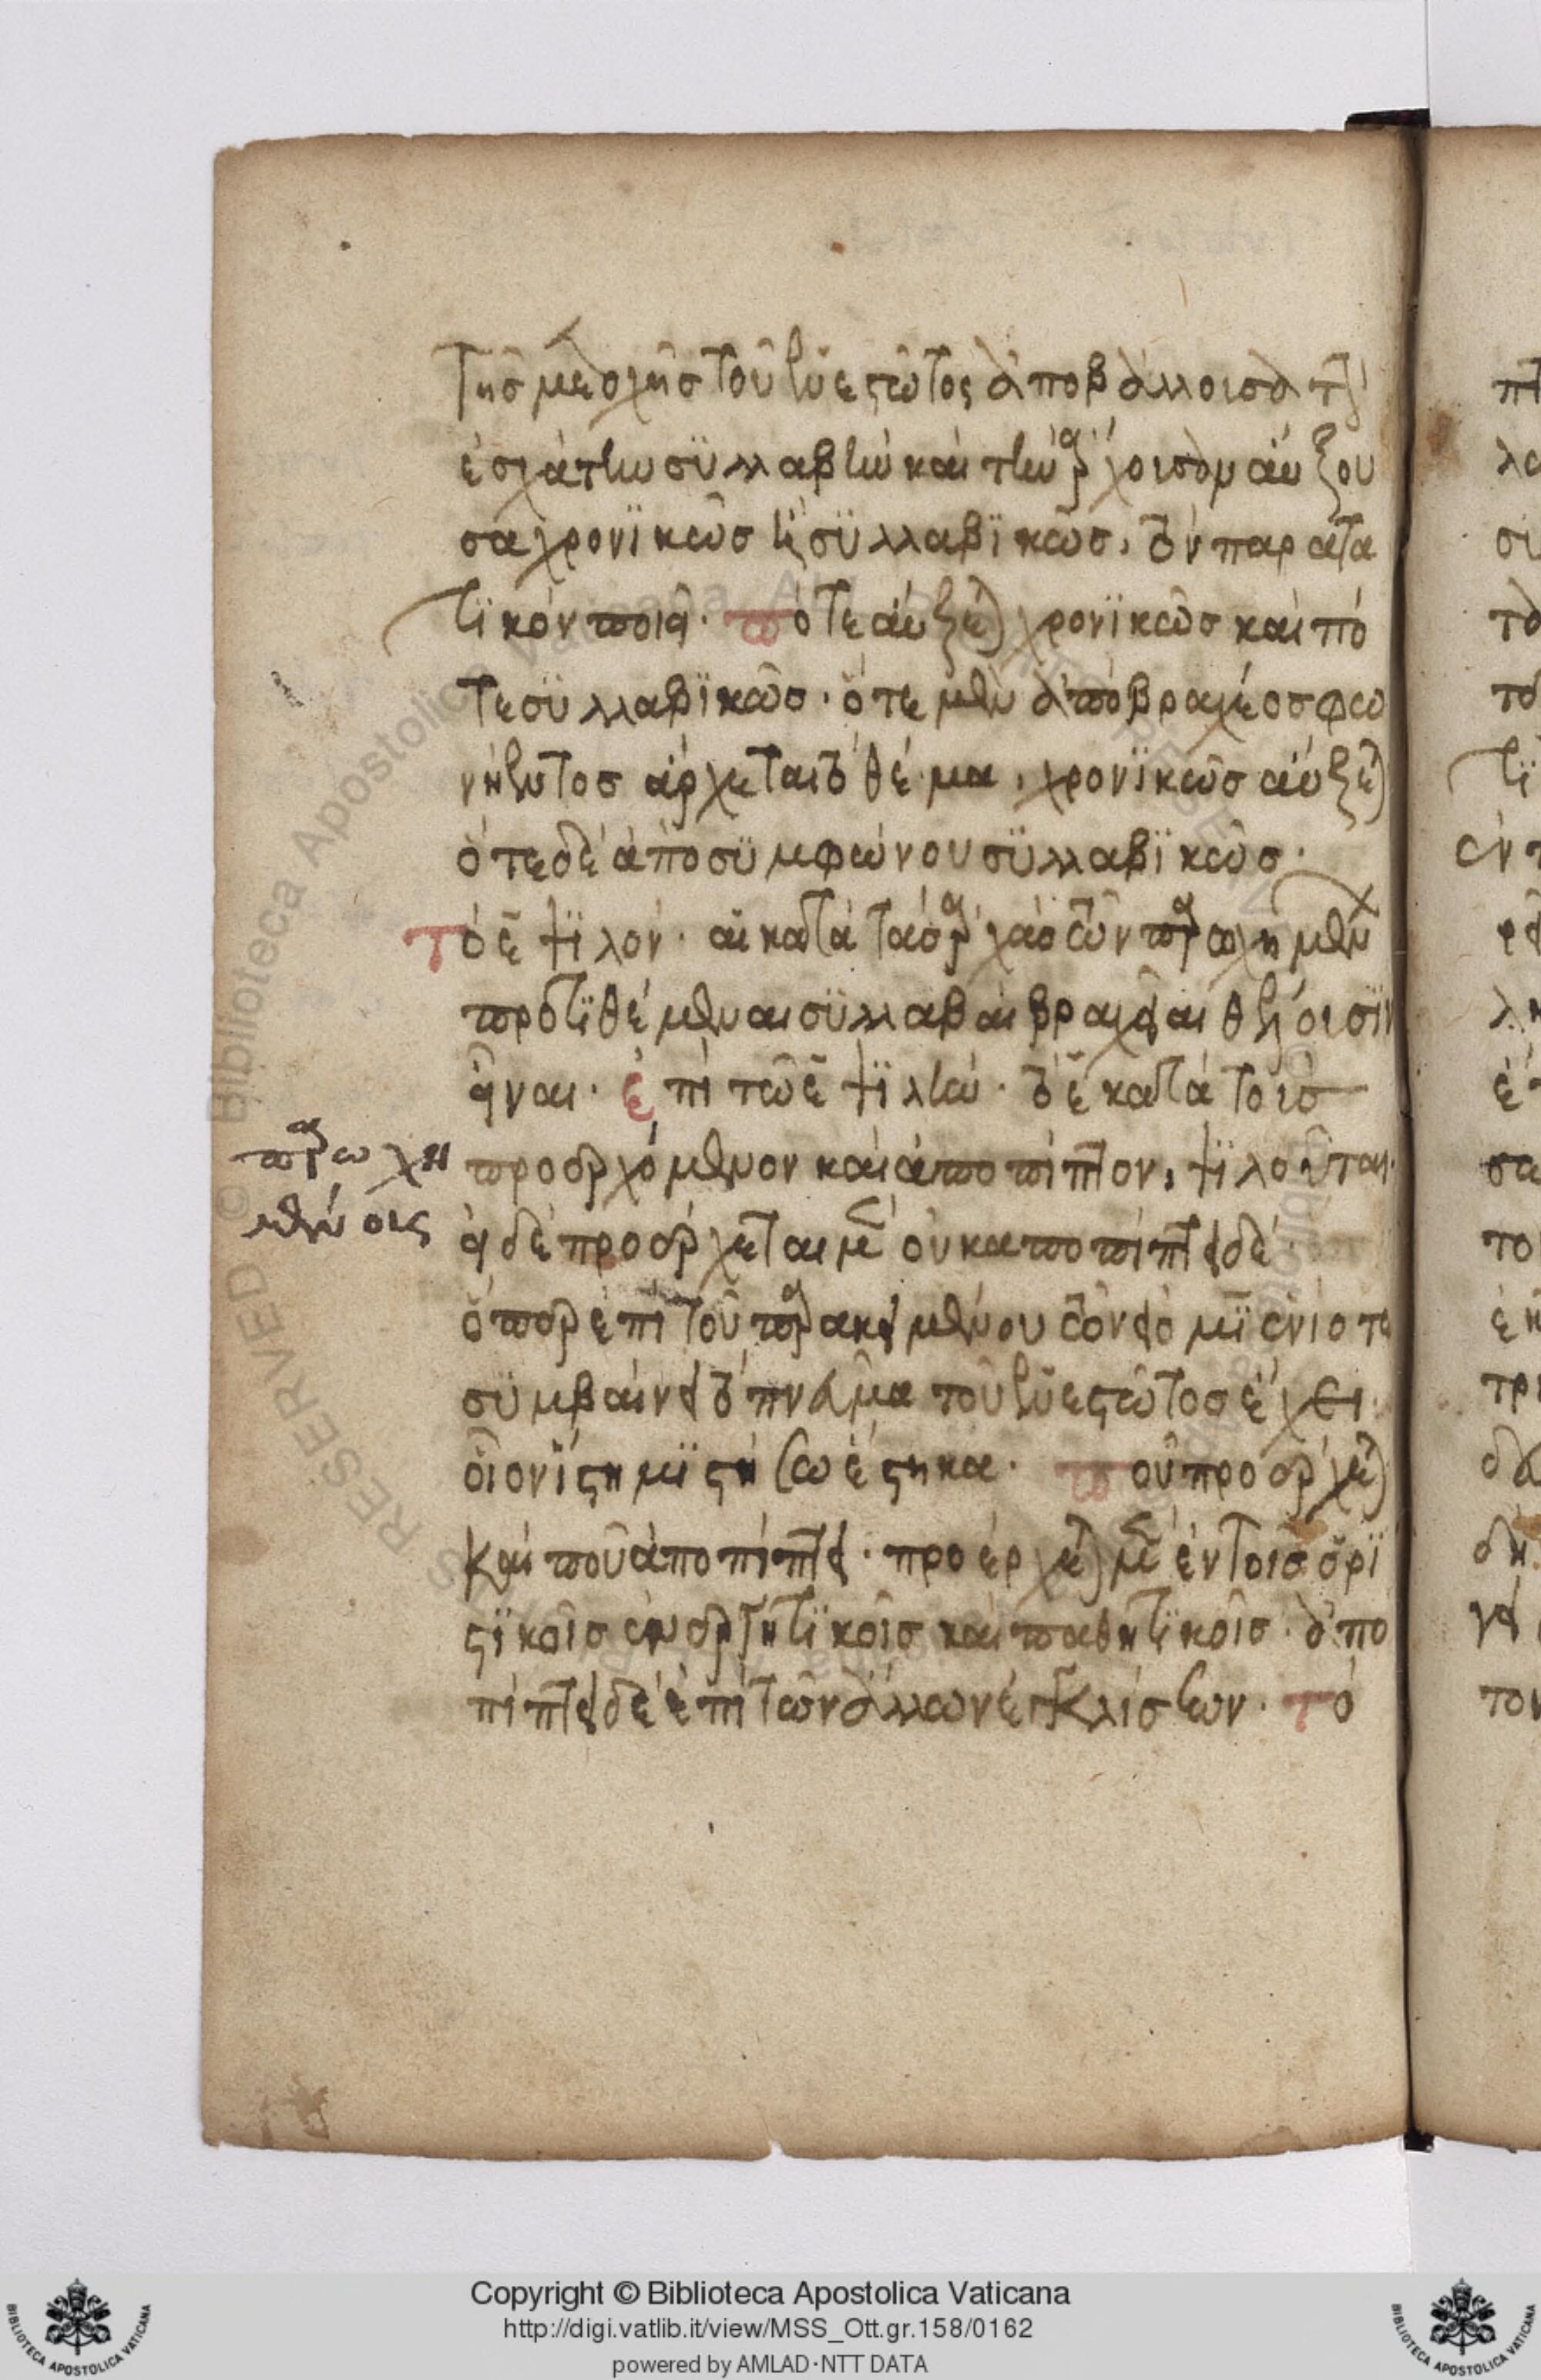 Τῆς μετοχῆς τοῦ ἐνεστῶτος ἀποβάλλουσα τὴν
ἐσχάτην συλλαβὴν καὶ τὴν ἄρχουσαν αὔξου
σα χρονικῶς ἢ συλλαβικῶς, τὸν παρατα
τικὸν ποιεῖ. πότε αὔξεται χρονικῶς καὶ πό
τε συλλαβικῶς. ὅτε μὲν ἀπὸ βραχέος φω
νήεντος ἄρχεται τὸ θέμα, χρονικῶς αὔξεται
ὅτε δὲ ἀπὸ συμφώνου συλλαβικῶς.
τὸ ε ψιλόν. αἱ κατὰ τὰς ἀρχὰς τῶν παρωχημένων
προστιθέμεναι συλλαβαὶ βραχεῖαι θέλουσιν
εἶναι. ἐπὶ τῶ ε ψιλῶ. τὸ ε κατὰ τοῖς
παρωχη
μένοις
προσερχόμενον καὶ ἀποπίπτον, ψιλοῦται.
εἰ δὲ προσέρχεται μὲν οὐκ ἀποπίπτει δὲ
ὅπερ ἐπὶ τοῦ παρακειμένου τῶν εἰς μι ἐνίοτε
συμβαίνει τὸ πνεῦμα τοῦ ἐνεστῶτος ἔχει.
οἷον ἵστημι στήσω ἕστηκα. ποῦ προσέρχεται
καὶ ποῦ ἀποπίπτει. προέρχεται μὲν ἐν τοῖς ὁρι
στικοῖς ἐνεργητικοῖς καὶ παθητικοῖς. ἀπο
πίπτει δὲ ἐπὶ τῶν ἄλλων ἐγκλίσεων. τὸ
Copyright © Biblioteca Apostolica Vaticana
http://digi.vatlib.it/view/MSS_Ott.gr.158/0162
powered by AMLAD·NTT DATA